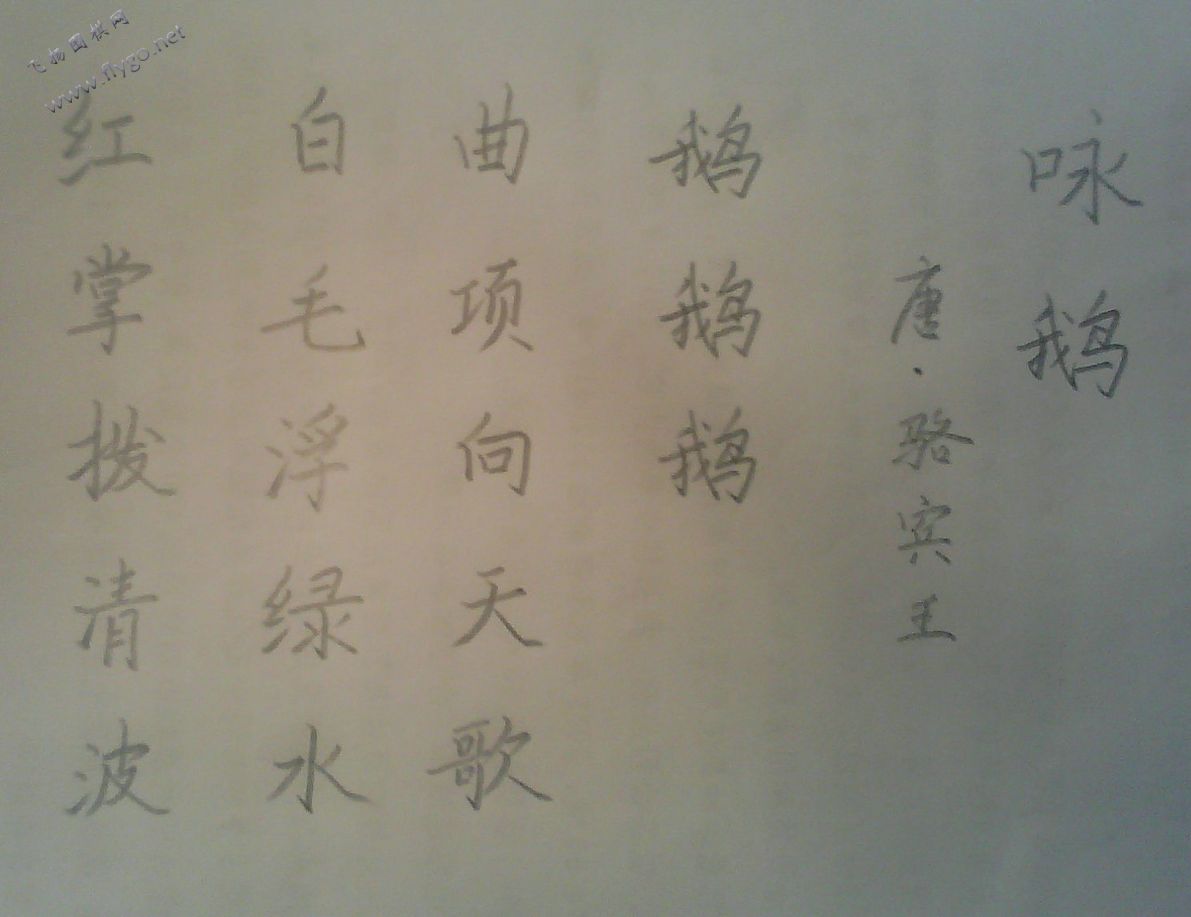 咏鹅
唐·骆宾王
鹅鹅鹅
曲项向天歌
白毛浮绿水
红掌拨清波
飞扬围棋网
www.flygo.net